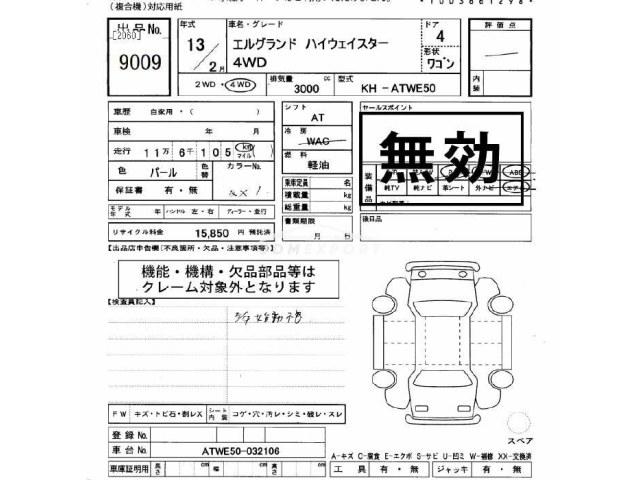 (複合機)対応用紙
1003661298*
出品No.
[2060]
9009
年式
13/2月
車名・グレード
エルグランド ハイウェイスター
4WD
ドア
4
形状
ワゴン
評価点
内装
2WD ・ 4WD
排気量 3000 cc
型式 KH-ATWE50
車歴 自家用・( )
車検 年 月
走行 11万 6千 105 km マイル
色 パール 色替 カラーNo. QX1
保証書 有・無
モデル年式 年 ハンドル 左・右 ディーラー・並行
リサイクル料金 15,850 円 預託済
シフト
AT
冷房
WAC
燃料
軽油
乗車定員 名
積載量 kg
総重量 kg
書類期限
月 日
セールスポイント
無効
装備品
純TV 純ナビ 革シート 外ナビ
ABS
後日品
【出品店申告欄(不良箇所・欠品・注意事項等)】
機能・機構・欠品部品等は
クレーム対象外となります
【検査員記入】
FW キズ・トビ石・割レX シート内張 コゲ・穴・汚レ・シミ・破レ・スレ
登録No.
車台No. ATWE50-032106
車庫証明用 長さ cm 幅 cm 高さ cm
スペア
A-キズ C-腐食 E-エクボ S-サビ U-凹ミ W-補修 XX-交換済
工具 有・無 ジャッキ 有・無